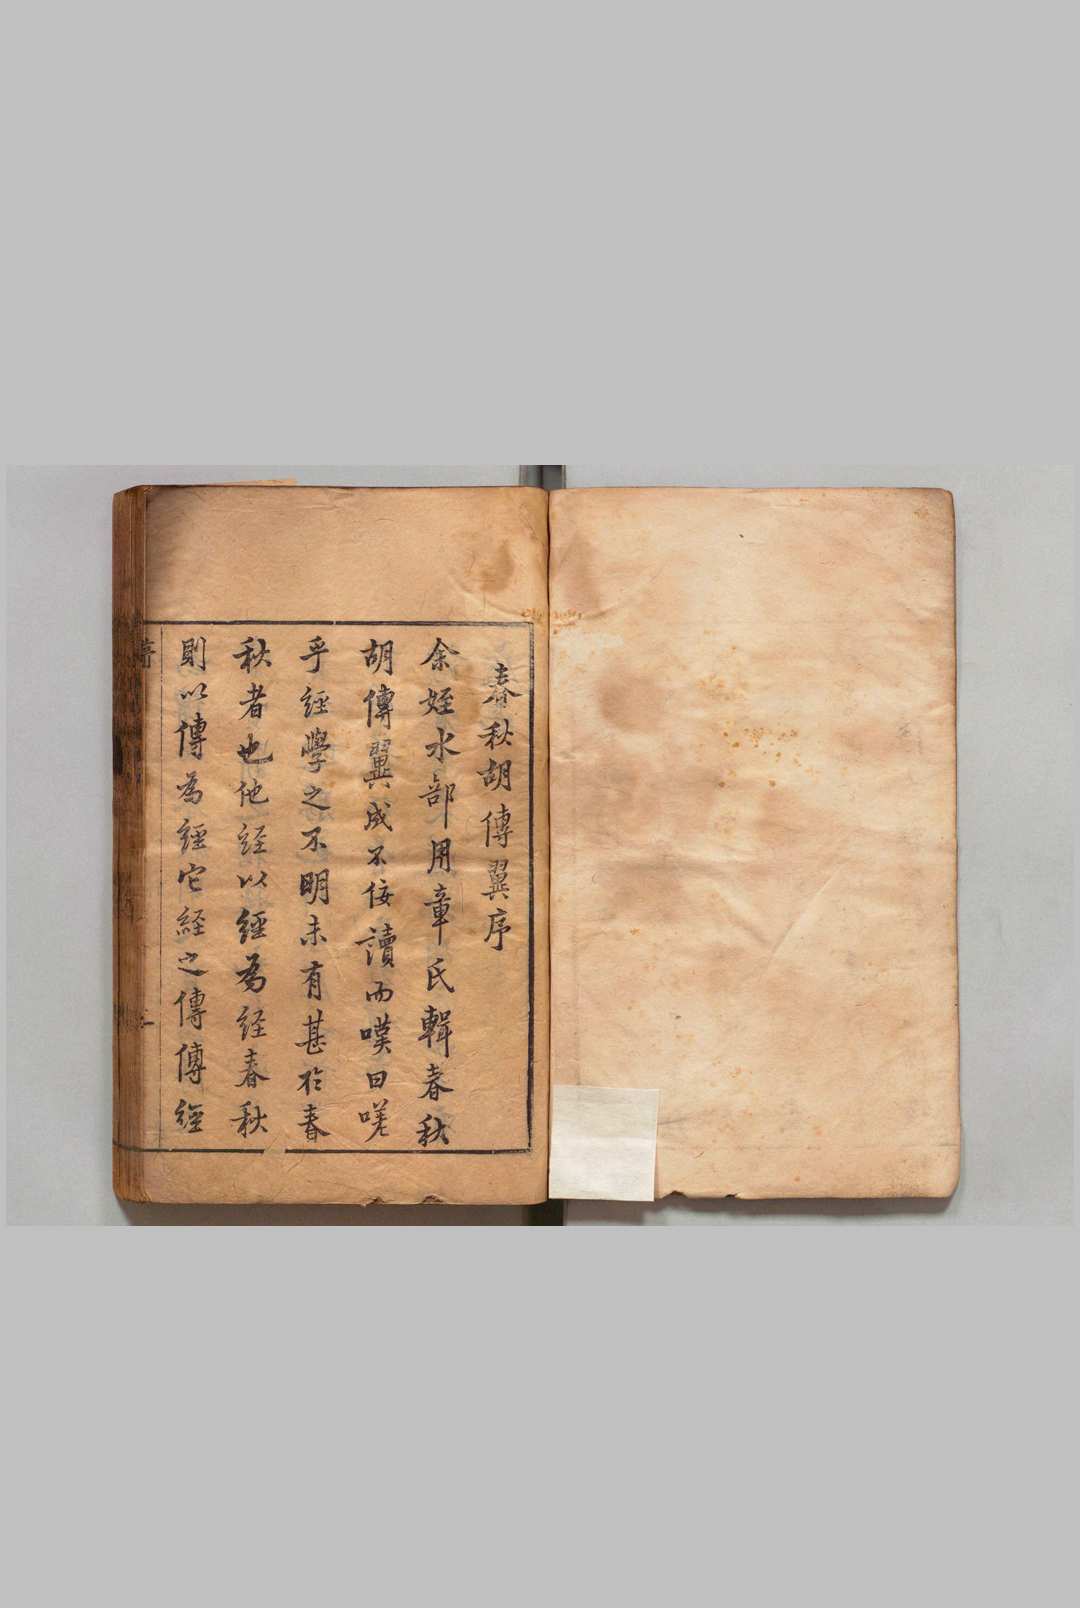 春秋胡傳翼序
余姪水部用章氏輯春秋
胡傳翼成不佞讀而嘆曰嗟
乎經學之不明未有甚於春
秋者也他經以經為經春秋
則以傳為經它經之傳傳經